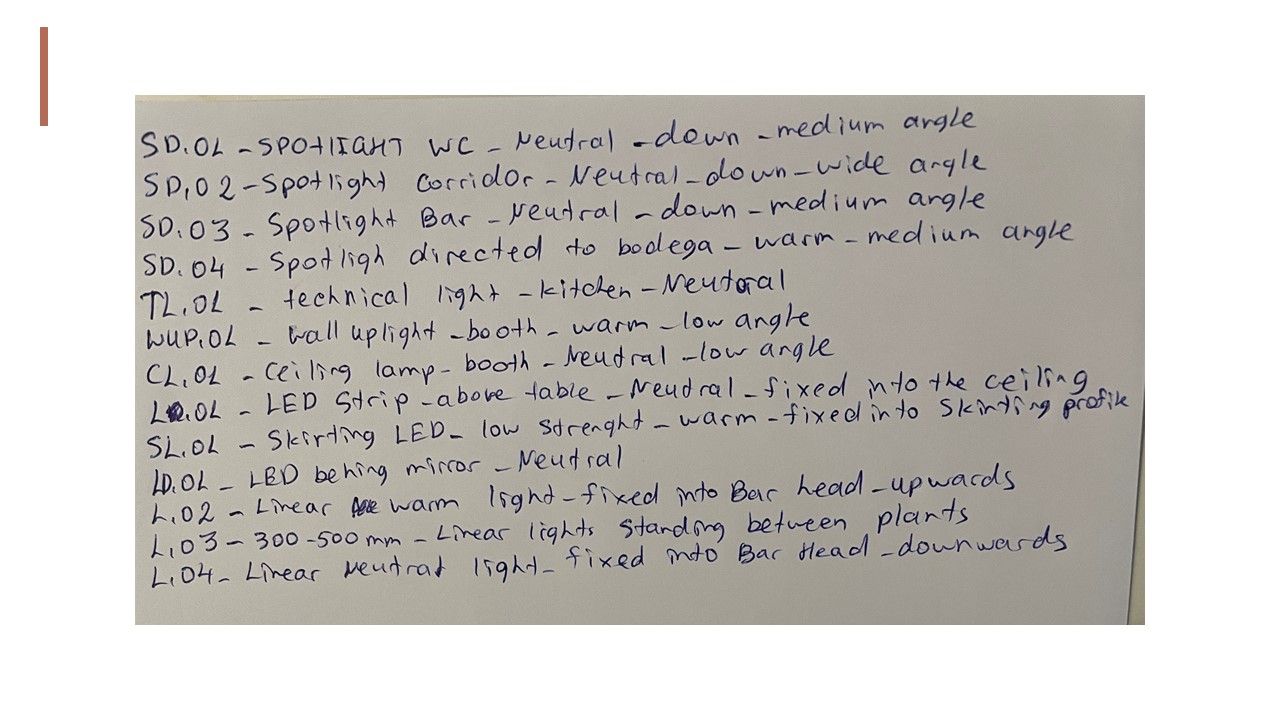 SD.01 - SPOtlIGHT WC - Neutral - down - medium angle
SD.02 - Spotlight Corridor - Neutral - down - wide angle
SD.03 - Spotlight Bar - Neutral - down - medium angle
SD.04 - Spotligh directed to bodega - warm - medium angle
TL.01 - technical light - kitchen - Neutral
WUP.01 - wall uplight - booth - warm - low angle
CL.01 - Ceiling lamp - booth - Neutral - low angle
L.01 - LED Strip - above table - Neutral - fixed into the ceiling
SL.01 - Skirting LED - low Strenght - warm - fixed into Skirting profile
LD.01 - LED behing mirror - Neutral
L.02 - Linear warm light - fixed into Bar head - upwards
L.03 - 300-500 mm - Linear lights Standing between plants
L.04 - Linear Neutral light - fixed into Bar Head - downwards